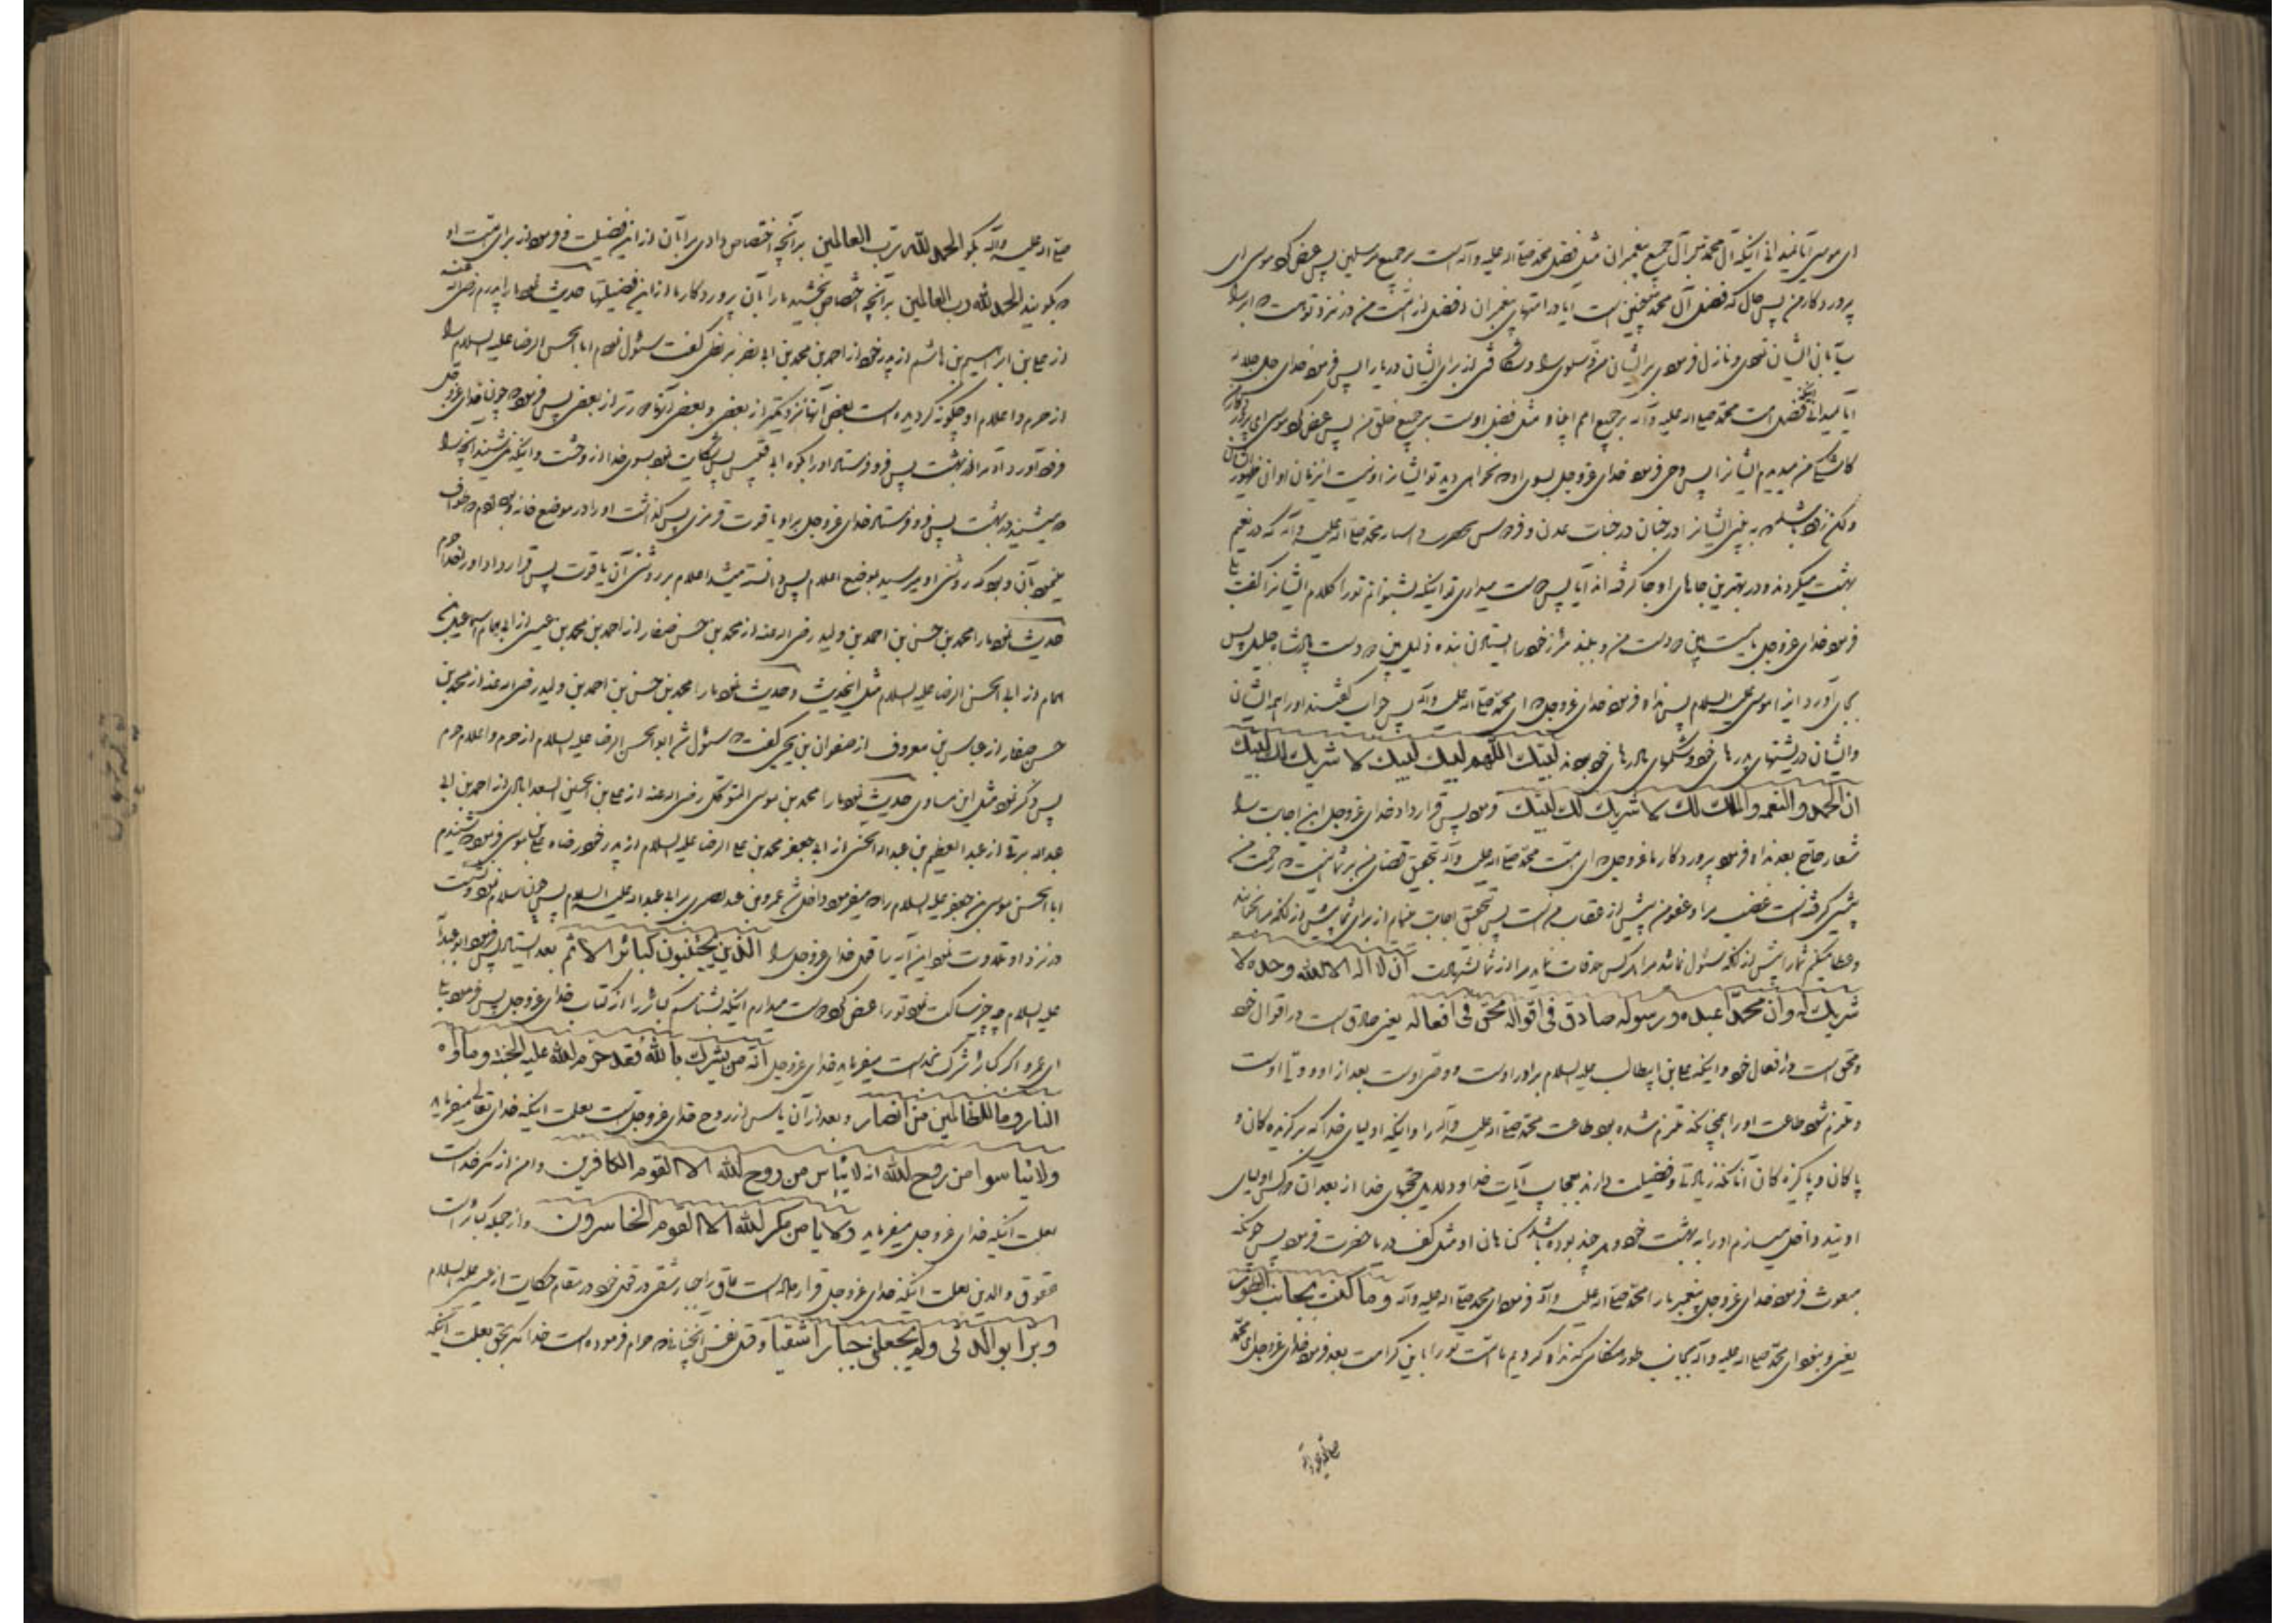 ای موسی آیا نمیدانی اینکه آل محمد بر آل جمیع پیغمبران مثل فضل محمد صلی اله علیه و آله است بر جمیع مرسلین پس عرض کرد موسی ای
پروردگار من پس حال که فضل آل محمد چنین است آیا در امتهای پیغمبران افضل از امت من در نزد تو هست که ابر را
سایه بان ایشان نمودی و نازل فرمودی بر ایشان من و سلوی را و شکافتی از برای ایشان دریا را پس فرمود خدای جل جلاله
آیا نمیدانی فضل امت محمد صلی اله علیه و آله بر جمیع امم انبیا و مثل فضل اوست بر جمیع خلق من پس عرض کرد موسی ای پروردگار
کاشکی من میدیدم ایشانرا پس وحی فرمود خدای عزوجل بسوی او که نخواهی دید تو ایشانرا و نیست این زمان اوان ظهور ایشان
ولکن زود باشد که به بینی ایشانرا در جنان در جنات عدن و فردوس محمد صلی اله علیه و آله که در نعیم
بهشت میگردند و در بهترین جاهای او جا گرفته اند آیا پس دوست میداری تو اینکه بشنوانم تو را کلام ایشانرا گفت بلی
فرمود خدای عزوجل بایست پس من و ببند مئزر خود را ایستادن بنده ذلیل پادشاه جلیل پس
بجای آورد اینرا موسی علیه السلام پس ندا فرمود خدای عزوجل که ای امت محمد صلی اله علیه و آله پس جواب گفتند او را همه ایشان
و ایشان در پشتهای پدرهای خود و شکمهای مادرهای خود بودند لبیک اللهم لبیک لبیک لا شریک لک لبیک
ان الحمد و النعمه والملک لک لا شریک لک لبیک فرمود پس قرار داد خدای عزوجل این اجابت را
شعار حاج بعد ندا فرمود پروردگار ما عزوجل که ای امت محمد صلی اله علیه و آله بتحقیق قضای من بر شما اینست که رحمت من
پیشی گرفته است غضب مرا و عفو من پیش از عقاب منست پس بتحقیق اجابت مینمایم از برای شما پیش از آنکه مرا بخوانید
و عطا میکنم شما را پیش از آنکه سئوال نمائید مرا هرکس ملاقات نماید مرا از شما بشهادت ان لا اله الا الله وحده لا
شریک له وان محمدا عبده و رسوله صادق فی اقواله محق فی افعاله یعنی صادق است در اقوال خود
و محق است در افعال خود و اینکه علی بن ابیطالب علیه السلام برادر اوست و وصی اوست بعد از او و ولی اوست
و ملتزم شود طاعت او را همچنانکه ملتزم شده بود طاعت محمد صلی اله علیه و آله را و اینکه اولیای خدا که برگزیده کان و
پاکان و پاکیزه کان آنانکه زیادتی و فضیلت دارند بعجایب آیات خدا و دلایل حجتهای خدا از بعد آن دو کس اولیای
اویند داخل میسازم او را به بهشت خود و هر چند بوده باشد کناهان او مثل کف دریا حضرت فرمود پس چونکه
مبعوث فرمود خدای عزوجل پیغمبر ما را محمد صلی اله علیه و آله فرمود ای محمد صلی اله علیه و آله وما کنت بجانب الطور
یعنی و نبودی ای محمد صلی اله علیه و آله بجانب طور هنگامی که ندا کردیم ما امت تو را باین کرامت بعد فرمود خدای عزوجل ای محمد
صلی اله علیه و آله
صلی اله علیه و آله بگو الحمد لله رب العالمین بر آنچه اختصاص دادی مرا بآن از این فضیلت و فرمود از برای امت او
که بگویند الحمد لله رب العالمین بر آنچه اختصاص بخشید ما را بآن پروردگار ما از این فضیلتها حدیث نمود ما را پدرم رضی الله عنه
از علی بن ابراهیم بن هاشم از پدر خود از احمد بن محمد بن ابی نصر بزنطی گفت سئوال نمودم ابا الحسن الرضا علیه السلام را
از حرم و اعلام او چگونه گردیده است بعض آنها نزدیکتر از بعض و بعض آنها دورتر از بعض پس فرمود چون خدای عزوجل
فرود آورد آدم را از بهشت پس فرو فرستاد او را بکوه ابی قبیس پس شکایت نمود بسوی خدا از وحشت و اینکه نمی شنید آنچه را
که میشنید در بهشت پس فرو فرستاد خدای عزوجل بر او یاقوت قرمزی پس گذاشت او را در موضع خانه و بود آدم که طواف
مینمود بآن و بود که روشنی او میرسید بموضع اعلام پس دانسته میشد اعلام بر روشنی آن یاقوت پس قرار داد او را خدا حرم
حدیث نمود ما را محمد بن حسن بن احمد بن ولید رضی اله عنه از محمد بن حسن صفار از احمد بن محمد بن عیسی از ابی همام اسماعیل بن
همام از ابی الحسن الرضا علیه السلام مثل این حدیث و حدیث نمود ما را محمد بن حسن بن احمد بن ولید رضی اله عنه از محمد بن
حسن صفار از عباس بن معروف از صفوان بن یحیی گفت که سئوال شد ابو الحسن الرضا علیه السلام از حرم و اعلام حرم
پس ذکر نمود مثل این مساوی حدیث نمود ما را محمد بن موسی المتوکل رضی اله عنه از علی بن الحسین السعد ابادی از احمد بن ابی
عبداله برقی از عبد العظیم بن عبداله الحسنی از ابی جعفر محمد بن علی الرضا علیه السلام از پدر خود رضا علی بن موسی فرمود شنیدم
ابا الحسن موسی بن جعفر علیه السلام را که میفرمود داخل شد عمرو بن عبید بصری بر ابی عبداله علیه السلام پس چون سلام نمود و نشست
در نزد او تلاوت نمود این آیه را قول خدای عزوجل را الذین یجتنبون کبائر الاثم بعد ایستاد پس فرمود ابو عبداله
علیه السلام چه چیز ساکت نمود تو را عرض کرد دوست میدارم اینکه بشناسم کبائر را از کتاب خدای عزوجل پس فرمود بلی
ای عمرو اکبر کبائر شرک بخداست میفرماید خدای عزوجل انه من یشرک بالله فقد حرم الله علیه الجنة و ماواه
النار وما للظالمین من انصار و بعد از آن یاس از روح خدای عزوجل است بعلت اینکه خدای تعالی میفرماید
ولا تیاسوا من روح الله انه لا ییاس من روح الله الا القوم الکافرین و امن از مکر خداست
بعلت اینکه خدای عزوجل میفرماید ولا یامن مکر الله الا القوم الخاسرون و از جمله کبائر است
عقوق والدین بعلت اینکه خدای عزوجل قرار داده است عاق را جبار شقی در قول خود در مقام حکایت از عیسی علیه السلام
و برا بوالدتی ولم یجعلنی جبارا شقیا و قتل نفس آنچنانی که حرام فرموده است خدا مگر بحق بعلت اینکه